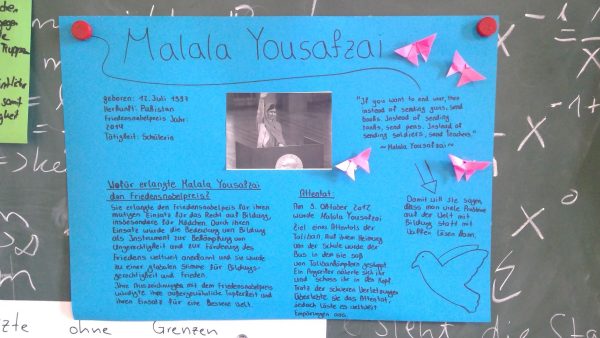 Malala Yousafzai
geboren: 12. Juli 1997
Herkunft: Pakistan
Friedensnobelpreis Jahr:
2014
Tätigkeit: Schülerin
"If you want to end war, then
instead of sending guns, send
books. Instead of sending
tanks, send pens. Instead of
sending soldiers, send teachers."
~ Malala Yousafzai ~
Wofür erlangte Malala Yousafzai
den Friedensnobelpreis?
Sie erlangte den Friedensnobelpreis für ihren
mutigen Einsatz für das Recht auf Bildung,
insbesondere für Mädchen. Durch ihren
Einsatz wurde die Bedeutung von Bildung
als Instrument zur Bekämpfung von
Ungerechtigkeit und zur Förderung des
Friedens weltweit anerkannt und sie wurde
zu einer globalen Stimme für Bildungs-
gerechtigkeit und Frieden.
Ihre Auszeichnung mit dem Friedensnobelpreis
würdigte ihre außergewöhnliche Tapferkeit und
ihren Einsatz für eine bessere Welt.
Attentat:
Am 9. Oktober 2012
wurde Malala Yousafzai
Ziel eines Attentats der
Taliban. Auf ihrem Heimweg
von der Schule wurde der
Bus in dem sie saß
von Talibankämpfern gestoppt.
Ein Angreifer näherte sich ihr
und schoss ihr in den Kopf.
Trotz der schweren Verletzungen
überlebte sie das Attentat,
jedoch löste es weltweit
Empörungen aus.
Damit will sie sagen,
dass man viele Probleme
auf der Welt mit
Bildung statt mit
Waffen lösen kann.
ohne Grenzen
die Sta